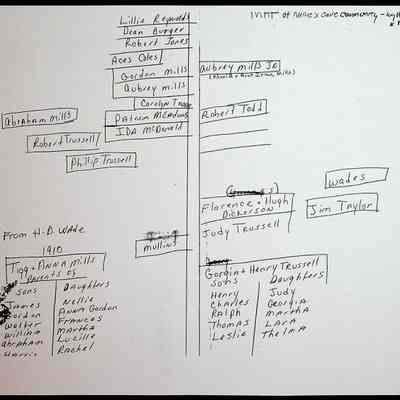 Lillie Reynolds
Dean Burger
Robert Jones
Aces Coles
Gordon mills
Aubrey mills
Carolyn
Patricia McAdams
IDA McDonald
of mills Cove Community -
Aubrey mills Jr
Robert Todd
Abraham Mills
Robert Trussell
Phillip Trussell
wades
Florence + Hugh
Dickerson
Jim Taylor
Judy Trussell
mullins
From H.D. Wade
1910
Tigg + ANNA Mills
Parents of
Sons
Daughters
James
Gordon
Walter
William
Abraham
Harris
Nellie
Anna Gordon
Frances
Martha
Lucille
Rachel
Gorgia + Henry Trussell
Sons
Daughters
Henry
Charles
Ralph
Thomas
Leslie
Judy
Georgia
Martha
Lara
Thelma